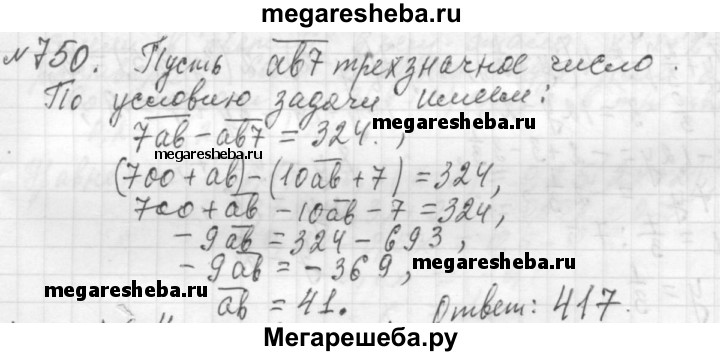 megaresheba.ru
№750. Пусть ab7 трехзначное число.
По условию задачи имеем:
7ab - ab7 = 324.,
megaresheba.ru
megaresheba.ru
(700 + ab) - (10ab + 7) = 324,
700 + ab - 10ab - 7 = 324,
- 9ab = 324 - 693,
- 9ab = - 369,
megaresheba.ru
megaresheba.ru
ab = 41. Ответ: 417.
Мегарешеба.ру